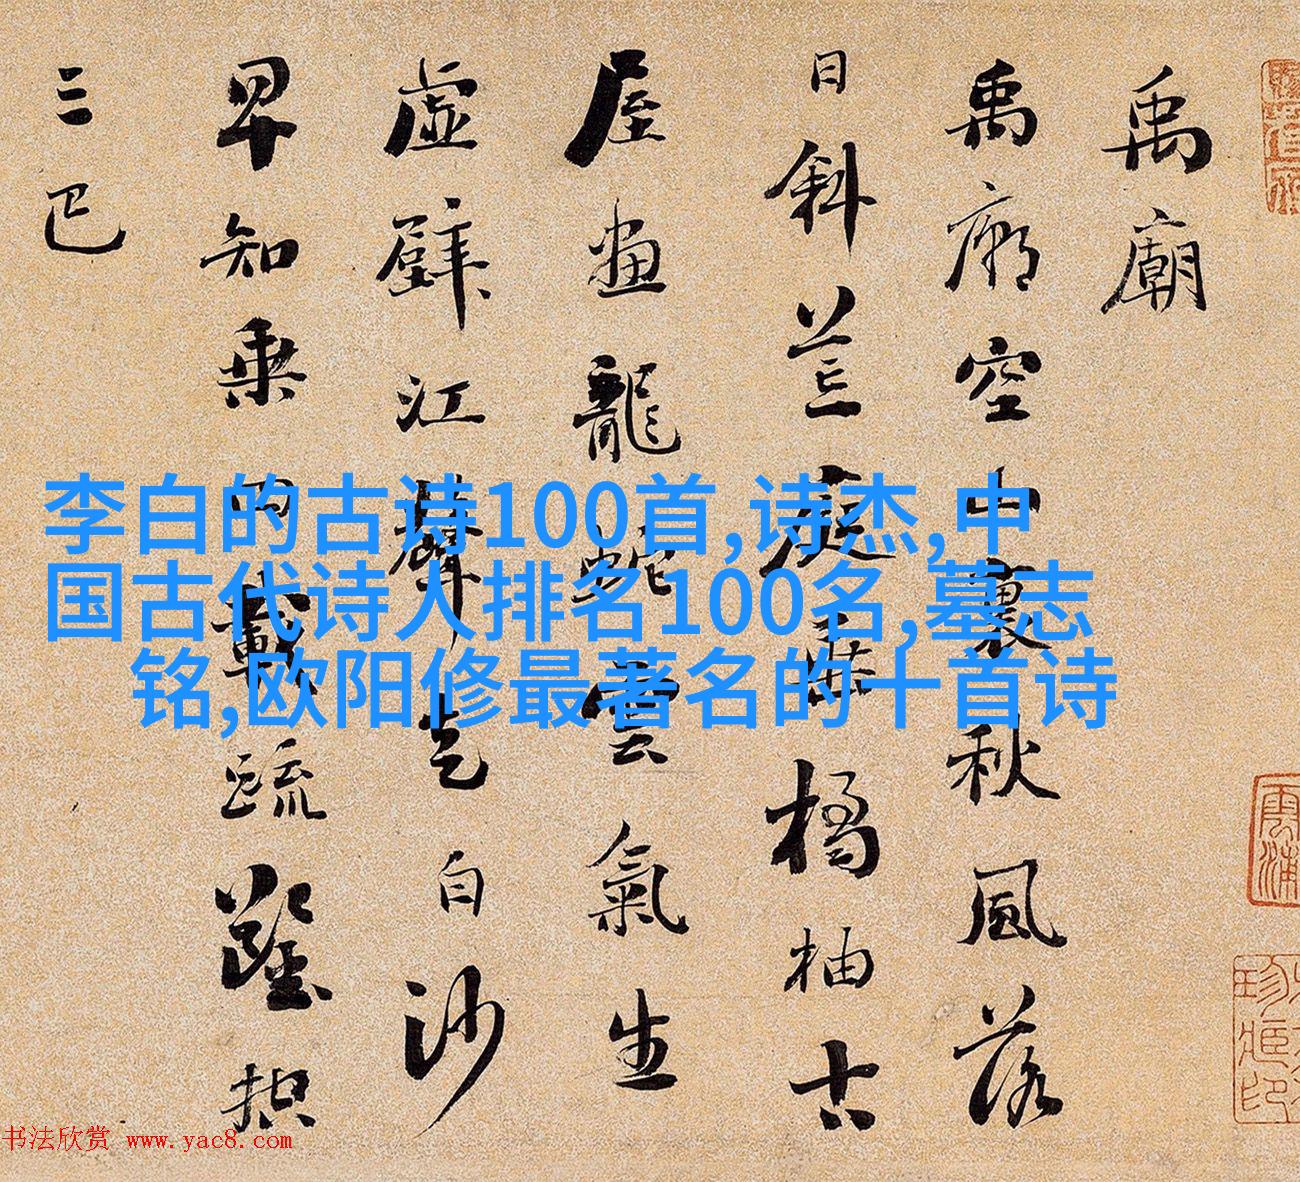 禹廟
禹廟空山裏秋風落
日斜荒庭垂橘柚古
屋畫龍蛇雲氣生
虛壁江聲走白沙
早知乘四載疏鑿控
三巴
李白的古诗100首,诗杰,中
国古代诗人排名100名,墓志
铭,欧阳修最著名的十首诗
书法欣赏 www.yac8.com